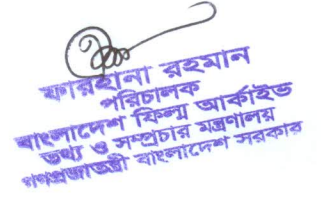 ফারহানা রহমান
পরিচালক
বাংলাদেশ ফিল্ম আর্কাইভ
তথ্য ও সম্প্রচার মন্ত্রণালয়
গণপ্রজাতন্ত্রী বাংলাদেশ সরকার